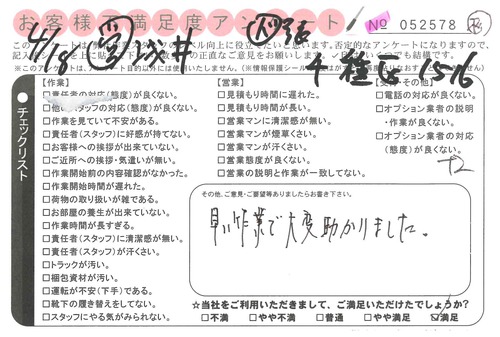 お客様不満足度アンケート
No 052578
4/18
【作業】
□責任者の対応(態度)が良くない。
□他のスタッフの対応(態度)が良くない。
□作業を見ていて不安がある。
□責任者(スタッフ)に好感が持てない。
□お客様への挨拶が出来ていない。
□ご近所への挨拶・気遣いが無い。
□作業開始前の内容確認がなかった。
□作業開始時間が遅れた。
□荷物の取り扱いが雑である。
□お部屋の養生が出来ていない。
□作業時間が長すぎる。
□責任者(スタッフ)に清潔感が無い。
□責任者(スタッフ)が汗くさい。
□トラックが汚い。
□梱包資材が汚い。
□運転が不安(下手)である。
□靴下の履き替えをしてない。
□スタッフにやる気がみられない。
【営業】
□見積もり時間に遅れた。
□見積もり時間が長い。
□営業マンに清潔感が無い。
□営業マンが煙草くさい。
□営業マンが汗くさい。
□営業態度が良くない。
□営業の説明と作業が一致してない。
□電話の対応が良くない。
□オプション業者の説明・作業が良くない。
□オプション業者の対応(態度)が良くない。
チェックリスト
その他、ご意見・ご要望等ありましたらお書き下さい。
早い作業で大変助かりました。
☆当社をご利用いただきまして、ご満足いただけたでしょうか?
□不満 □やや不満 □普通 □やや満足 ☑満足